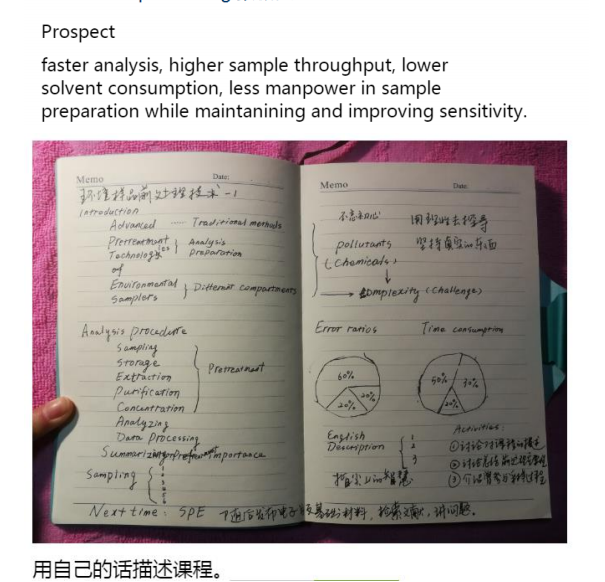 Prospect
faster analysis, higher sample throughput, lower
solvent consumption, less manpower in sample
preparation while maintanining and improving sensitivity.
Memo
Date:
环境样品前处理技术-1
Introduction
Advanced ...... Traditional methods
Pretreatment
Technologies
Analysis
Preparation
of
Environmental
Samplers
Different compartments
Analysis procedure
Sampling
Storage
Extraction
Purification
Concentration
Pretreatment
Analyzing
Data Processing
Summarizing importance
Sampling
1
2
3
4
5
6
Next time: SPE 下通信发布电子版基础材料,检索文献,讲问题。
Memo
Date:
不忘初心 用理性去探寻
pollutants 坚持真实的东西
(Chemicals)
complexity (Challenge)
Error ratios Time consumption
60%
20%
20%
50%
30%
20%
English
Description
1
2
3
Activities:
①讨论对课程的
②讨论总结前处理
③介绍 过程
指尖上的智慧
用自己的话描述课程。